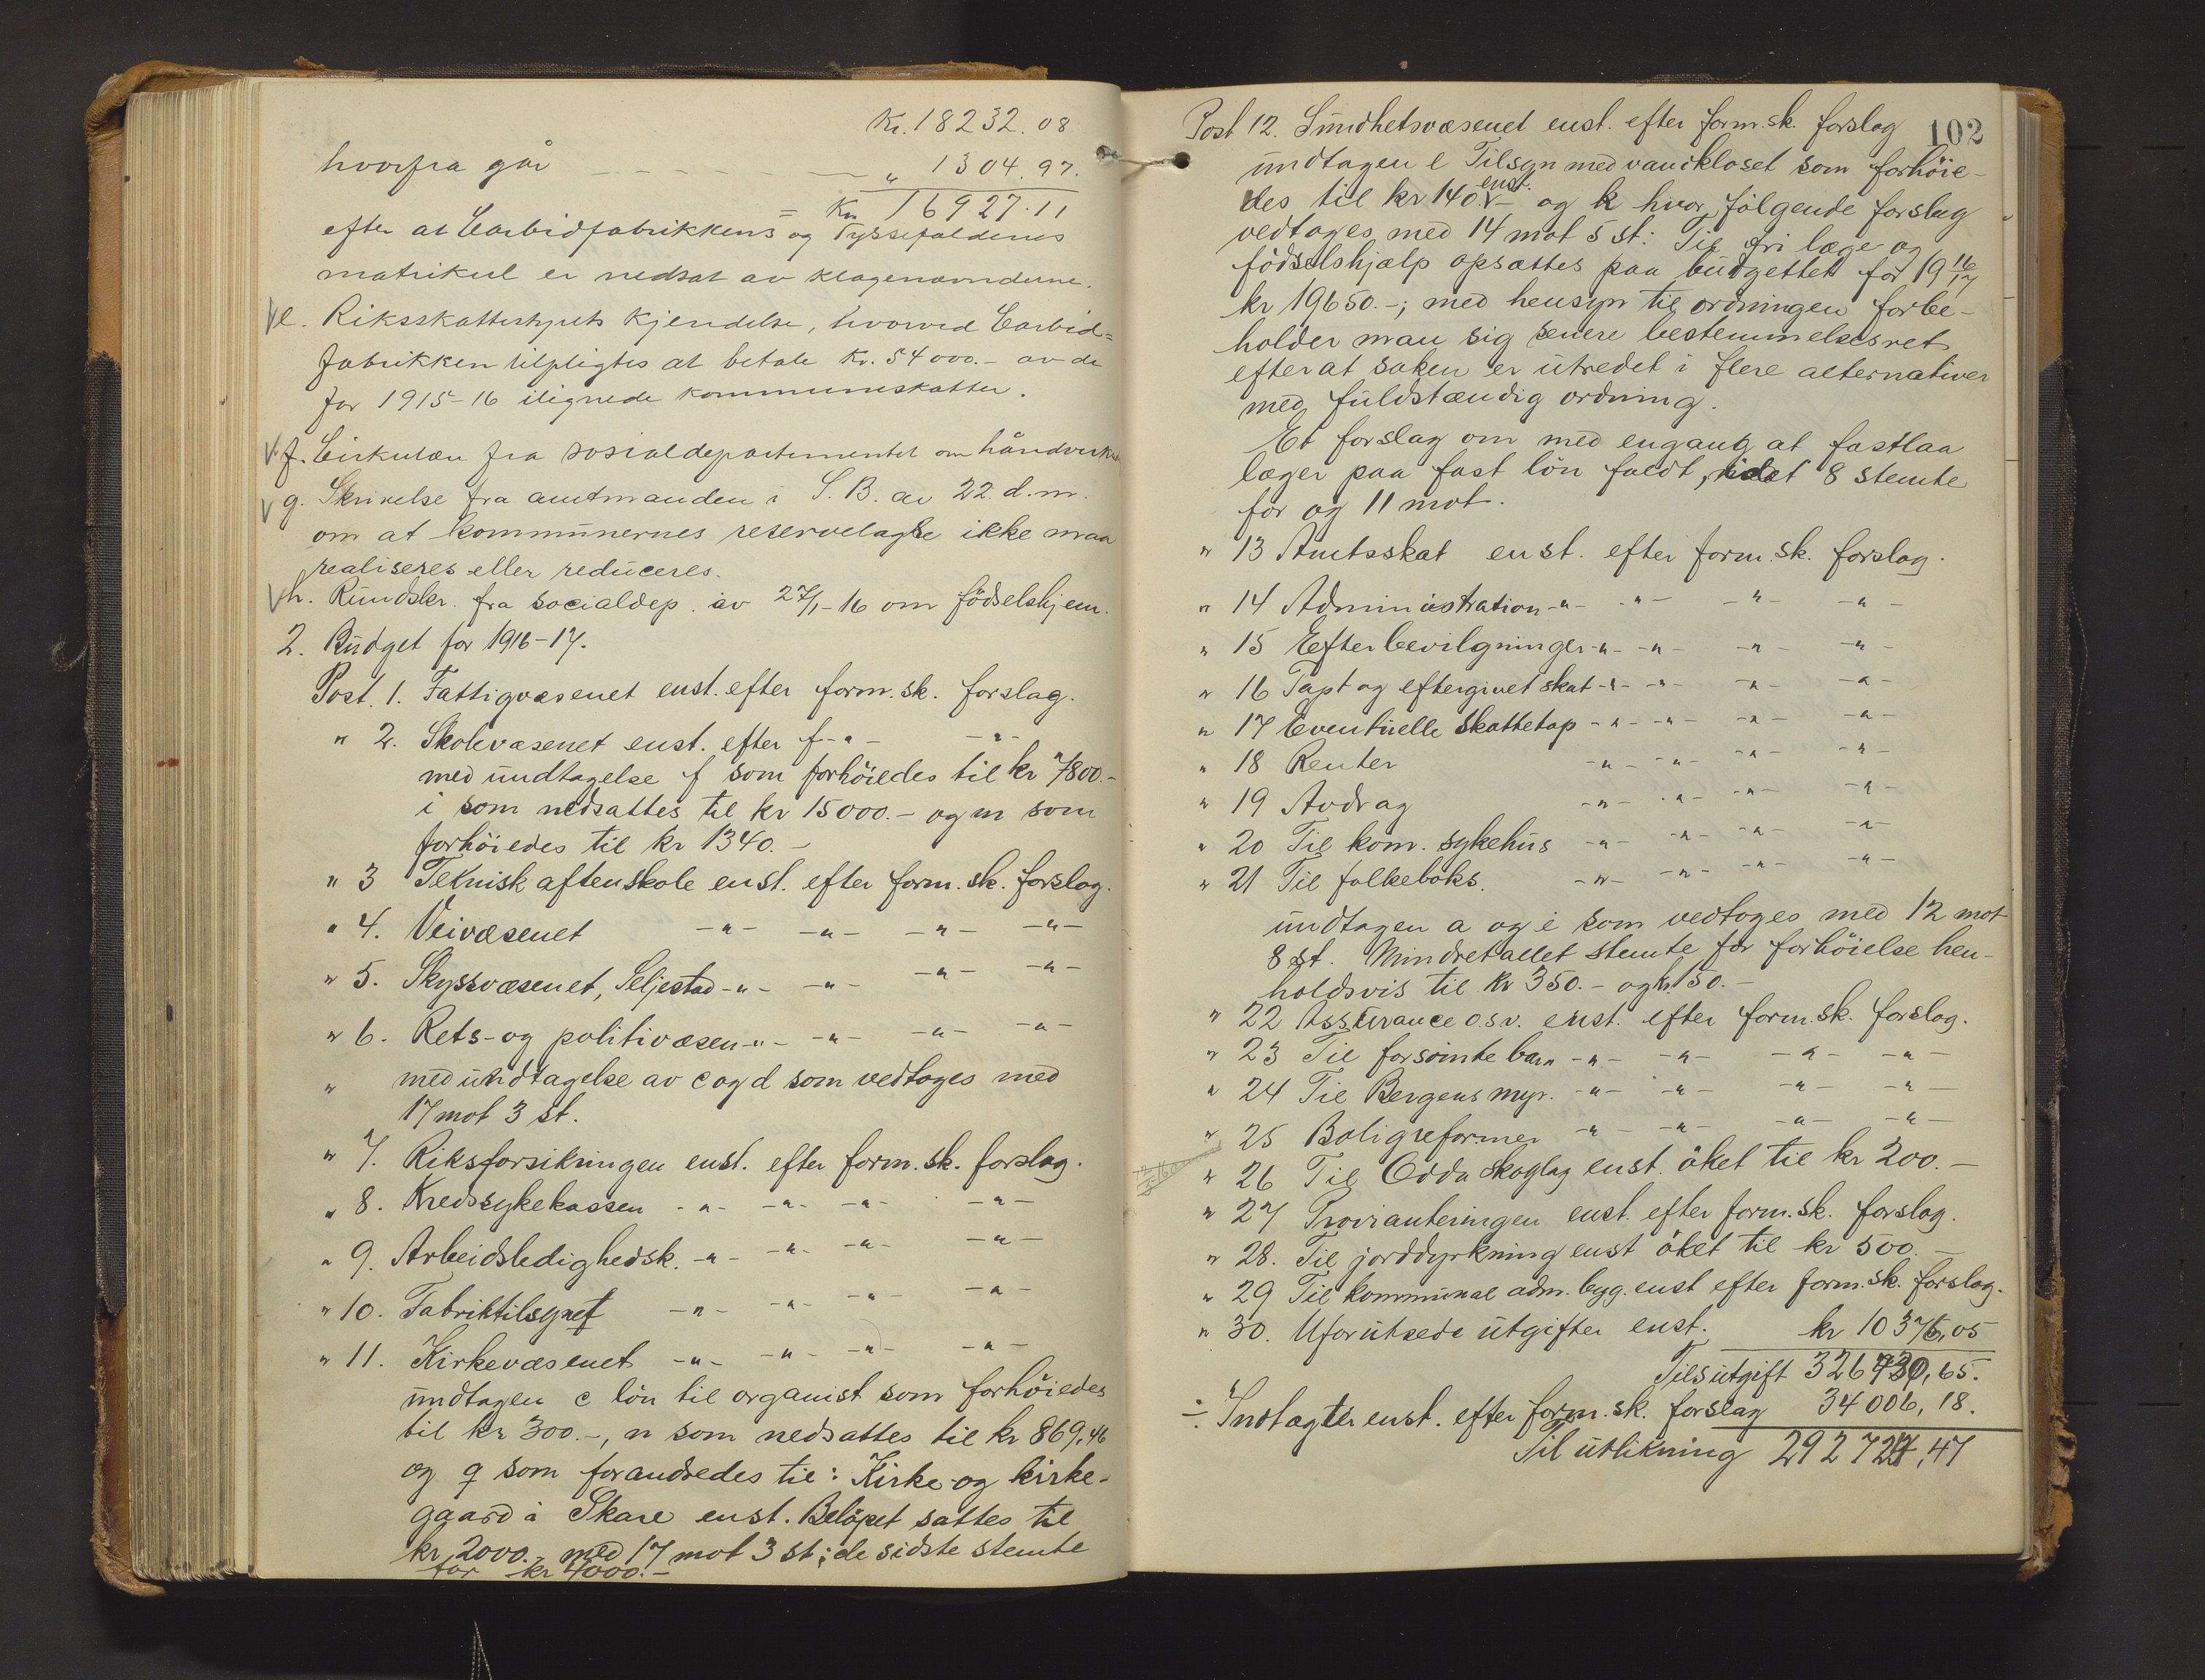 Kr. 18232.08
hvorfra går - - - - - - - " 1304.97.
= Kr 16927.11
efter at Carbidfabrikkens og Tyssefaldenes
matrikul er nedsat av klagenævnderne.
e. Riksskatterettens kjendelse, hvorved Carbid=
fabrikken tilpligtes at betale Kr. 54000.- av de
for 1915-16 ilignede kommuneskatter.
f. Cirkulær fra sosialdepartementet om håndverk
g. Skrivelse fra amtmanden i S. B. av 22. d.m.
om at kommunernes reservelagre ikke maa
realiseres eller reduceres.
h. Rundskr. fra socialdep. av 27/1-16 om fødselshjem.
2. Budget for 1916-17.
Post. 1. Fattigvæsenet enst. efter form.sk. forslag.
" 2. Skolevæsenet enst. efter f -"- -"-
med undtagelse f som forhöiedes til kr 7800.-
i som nedsattes til kr 15000.- og m som
forhöiedes til kr 1340.-
" 3 Teknisk aftenskole enst. efter form.sk. forslag.
" 4. Veivæsenet -"- -"- -"- -"-
" 5. Skyssvæsenet, Seljestad -"- -"- -"- -"-
" 6. Rets- og politivæsen -"- -"- -"- -"-
" med undtagelse av c og d som vedtoges med
17 mot 3 st.
" 7. Riksforsikringen enst. efter form.sk. forslag.
" 8. Kredssykekassen -"- -"- -"- -"-
" 9. Arbeidsledighedsk. -"- -"- -"- -"-
" 10. Fabriktilsynet -"- -"- -"- -"-
" 11. Kirkevæsenet -"- -"- -"- -"-
undtagen c lön til organist som forhöiedes
til kr 300.-, n som nedsattes til kr 869,46
og q som forandredes til: Kirke- og kirke-
gaard i Skare enst. Belöpet sattes til
kr 2000.- med 17 mot 3 st; de sidste stemte
for kr 4000.-
102
Post 12. Sundhetsvæsenet enst. efter form.sk. forslag
undtagen l Tilsyn med vandkloset som forhöie-
enst.
des til kr 140.- og k hvor fölgende forslag
vedtages med 14 mot 5 st: Til fri læge og
födselshjælp opsættes paa budgettet for 19 16/17
kr 19650.-; med hensyn til ordningen forbe-
holder man sig senere bestemmelsesret
efter at saken er utredet i flere alternativer
med fuldstændig ordning.
Et forslag om med engang at fastlaa
læger paa fast lön faldt, idet 8 stemte
for og 11 mot.
" 13 Amtsskat enst. efter form.sk. forslag.
" 14 Administration -"- -"- -"- -"-
" 15 Efterbevilgninger -"- -"- -"- -"-
" 16 Tapt og eftergivet skat -"- -"- -"- -"-
" 17 Eventuelle skattetap -"- -"- -"- -"-
" 18 Renter -"- -"- -"- -"-
" 19 Avdrag -"- -"- -"- -"-
" 20 Til kom. sykehus -"- -"- -"- -"-
" 21 Til folkeboks. -"- -"- -"- -"-
undtagen a og i som vedtoges med 12 mot
8 st. Mindretallet stemte for forhöielse hen-
holdsvis til kr 350.- og kr. 150.-
" 22 Assurance o.s.v. enst. efter form.sk. forslag.
" 23 Til forsömte barn -"- -"- -"- -"-
" 24 Til Bergens myr. -"- -"- -"- -"-
" 25 Boligreformer -"- -"- -"- -"-
" 26 Til Odda skoglag enst. öket til kr 200.-
" 27 Provianteringen enst. efter form.sk. forslag.
" 28. Til jorddyrkning enst öket til kr 500.-
" 29 Til kommunal adm. byg. enst efter form.sk. forslag.
" 30. Uforutsede utgifter enst. kr 10376,05
Tils utgift 326730,65.
÷ Indtægter enst. efter form.sk. forslag 34006,18.
Til utlikning 292724,47